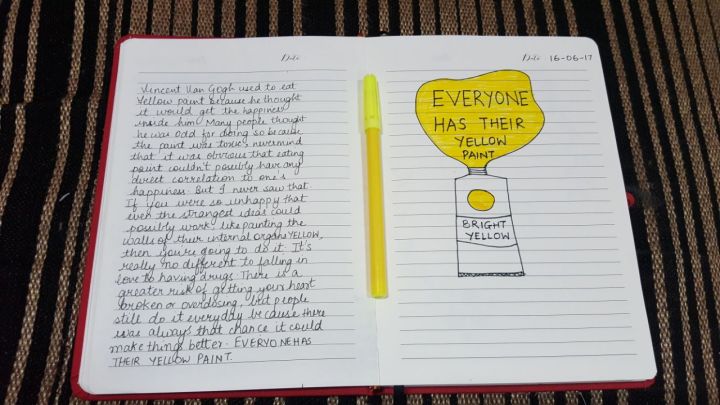 Date
Vincent Van Gogh used to eat
Yellow paint because he thought
it would get the happiness
inside him. Many people thought
he was odd for doing so because
the paint was toxic, nevermind
that it was obvious that eating
paint couldn't possibly have any
direct correlation to one's
happiness. But I never saw that.
If you were so unhappy that
even the strangest ideas could
possibly work, like painting the
walls of their internal organs YELLOW,
then you're going to do it. It's
really no different to falling in
love to having drugs. There is a
greater risk of getting your heart
broken or overdosing, but people
still do it everyday because there
was always that chance it could
make things better. EVERYONE HAS
THEIR YELLOW PAINT.
Date 16-06-17
EVERYONE
HAS THEIR
YELLOW
PAINT
BRIGHT
YELLOW